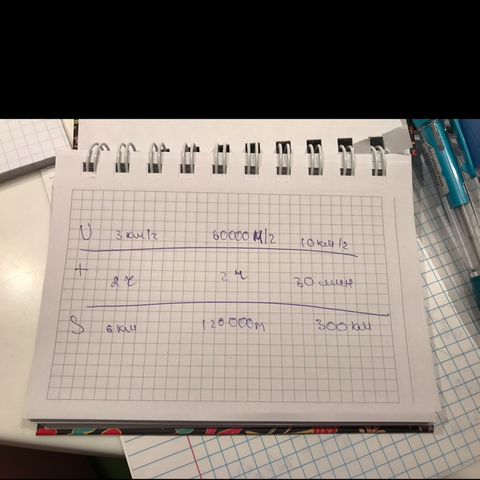 U 3 км/ч 60000 м/ч 10 км/ч
t 2 ч 2 ч 30 мин
S 6 км 120000м 300 км